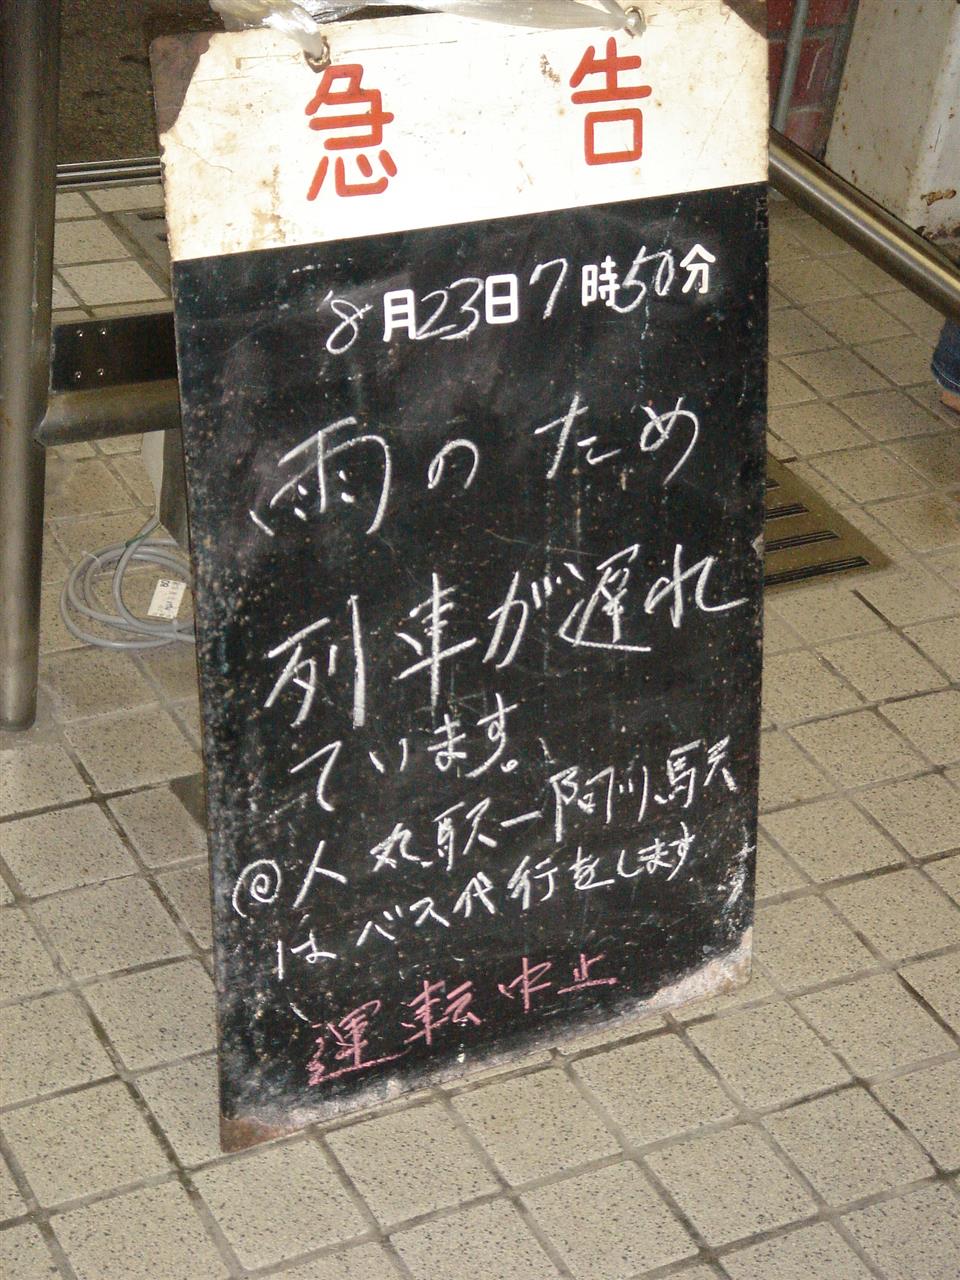 急告
8月23日7時50分
雨のため
列車が遅れ
ています。
@人丸駅ー阿川駅
はバス代行をします
運転中止